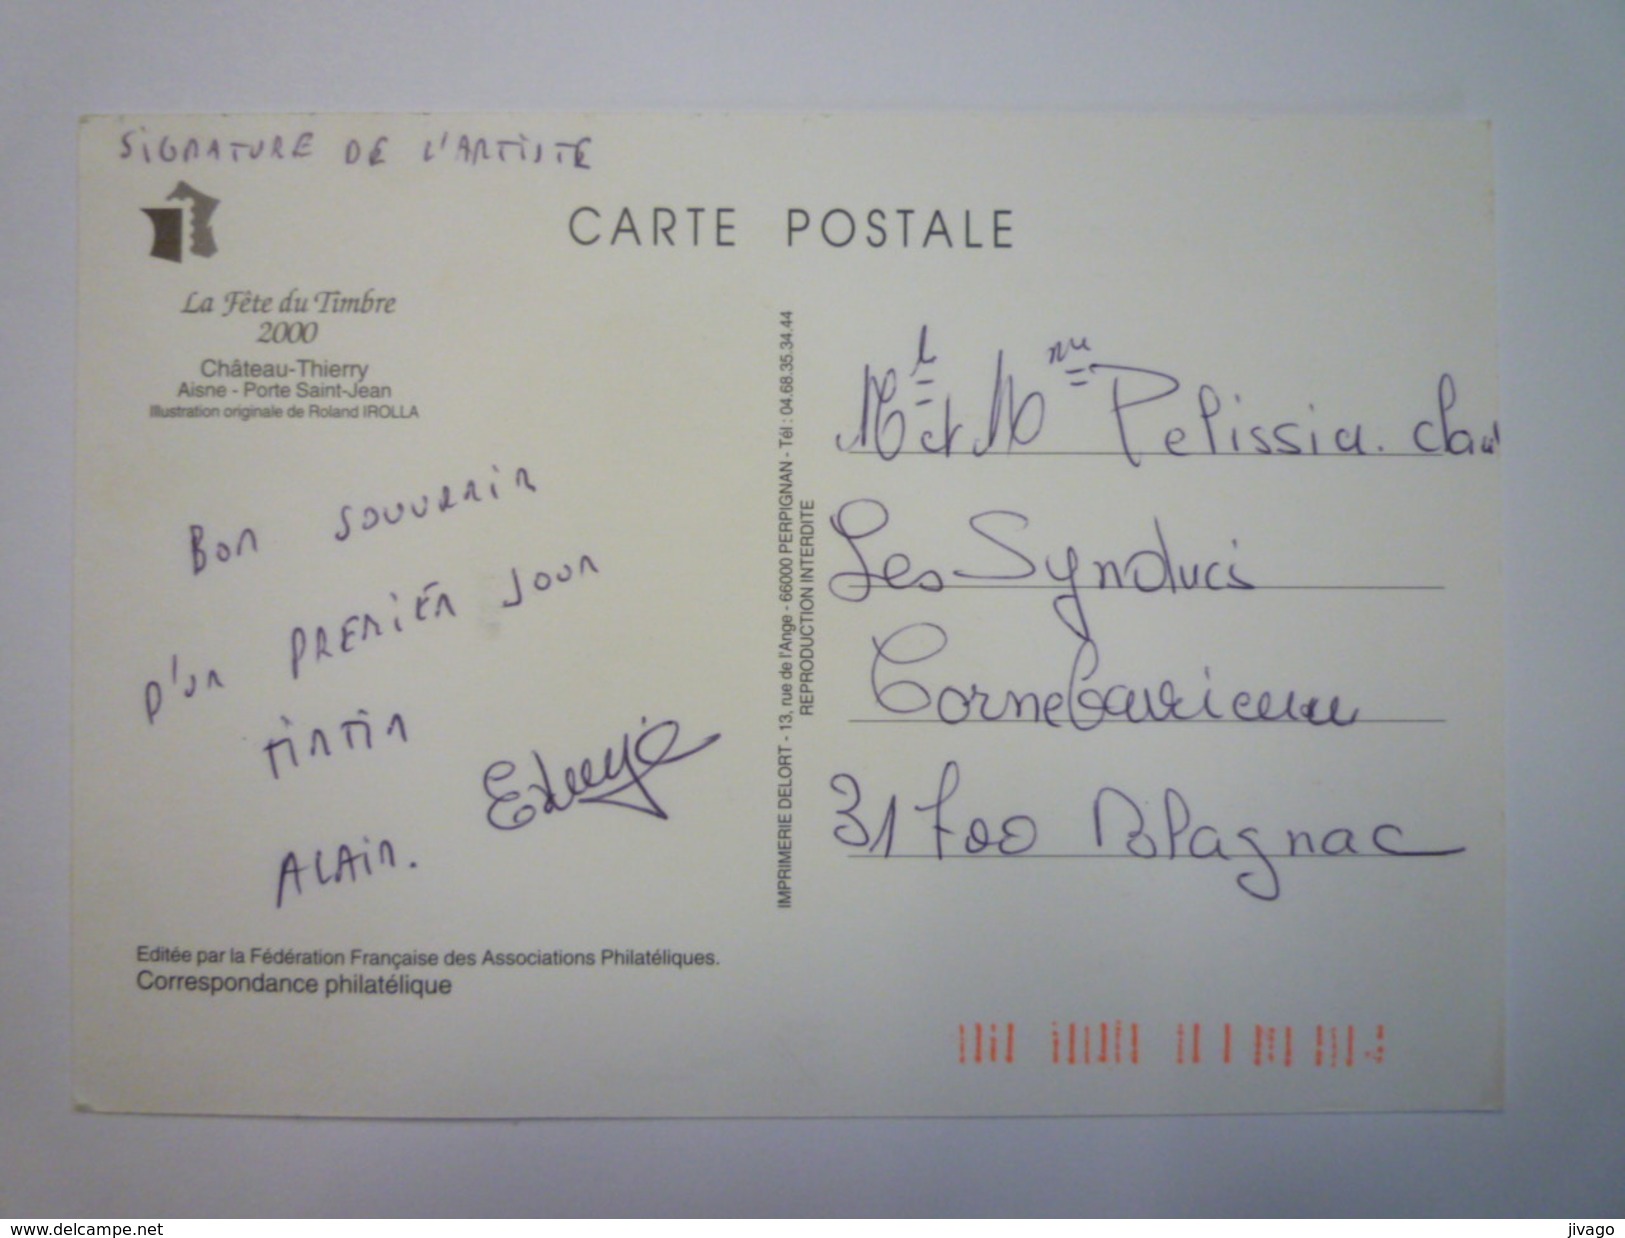 SIGNATURE DE L'ARTISTE
CARTE POSTALE
La Fête du Timbre
2000
Château-Thierry
Aisne - Porte Saint-Jean
Illustration originale de Roland IROLLA
BON SOUVENIR
D'UN PREMIER JOUR
TINTIN
ALAIN.
Editée par la Fédération Française des Associations Philatéliques.
Correspondance philatélique
IMPRIMERIE DELORT - 13, rue de l'Ange - 66000 PERPIGNAN - Tél : 04.68.35.34.44
REPRODUCTION INTERDITE
Mr et Mme Pelissia.
Les
Cornebarrieu
31700 Blagnac
www.delcampe.net
jivago